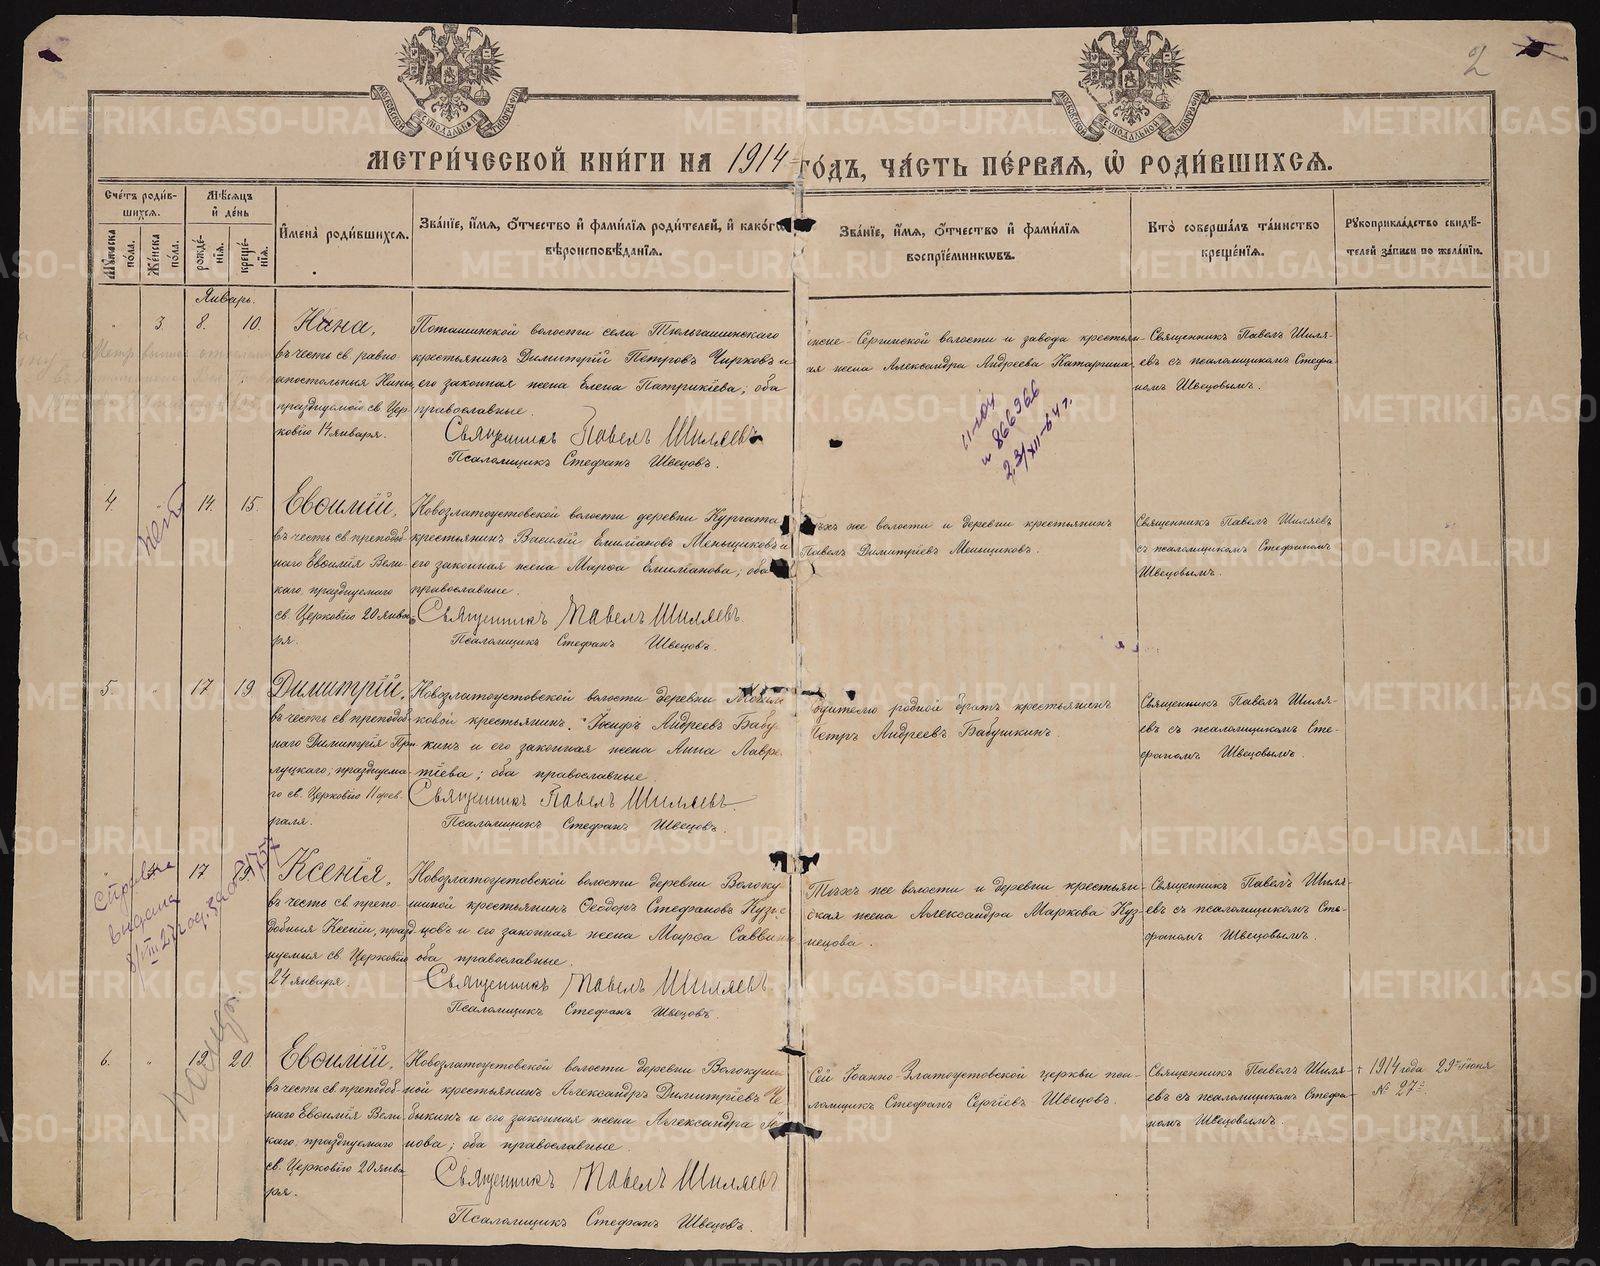 2
МОСКОВСКОЙ СѴНОДАЛЬНОЙ ТИПОГРАФІИ
МОСКОВСКОЙ СѴНОДАЛЬНОЙ ТИПОГРАФІИ
МЕТРИ́ЧЕСКОЙ КНИ́ГИ НА 1914 ГО́ДЪ, ЧА́СТЬ ПЕ́РВАЯ, Ѽ РОДИ́ВШИХСЯ.
Сче́тъ роди́в-
шихся.
Му́жеска по́ла.
Же́нска по́ла.
Мѣ́сяцъ
и҆ де́нь
рожде́-
нїя.
креще́-
нїя.
И҆мена̀ роди́вшихся.
Зва́нїе, и҆́мя, о҆́тчество и҆ фами́лїя роди́телей, и҆ како́гѡ
вѣроисповѣ́данїя.
Зва́нїе, и҆́мя, о҆́тчество и҆ фами́лїя
воспрїе́мникѡвъ.
Кто̀ соверша́лъ та́инство
креще́нїя.
Рꙋкоприкла́дство свидѣ́-
телей за́писи по жела́нїю.
Январь.
" 3. 8. 10. Нина,
въ честь св. равно
апостольныя Нины,
празднуемой св. Цер
ковію 14 января.
Поташинской волости села Тюльгашинскаго
крестьянинъ Димитрій Петровъ Чирковъ и
его законная жена Елена Патрикіева; оба
православные.
Священникъ Павелъ Шиляевъ
Псаломщикъ Стефанъ Швецовъ.
Сергинской волости и завода крестьян
ая жена Александра Андреева Катаргина
Священникъ Павелъ Шиля-
евъ съ псаломщикомъ Стефа
номъ Швецовымъ.
866366
23/XII-64 г.
4. 14. 15. Евѳимій,
въ честь св. преподоб
наго Евѳимія Вели
каго, празднуемаго
св. Церковію 20 Янва
ря.
Новозлатоустовской волости деревни Кургата
крестьянинъ Василій Емиліановъ Меньщиковъ и
его законная жена Марѳа Емиліанова; оба
православные.
Священникъ Павелъ Шиляевъ.
Псаломщикъ Стефанъ Швецовъ.
Тѣхъ же волости и деревни крестьянинъ
Павелъ Димитріевъ Меньщиковъ.
Священникъ Павелъ Шиляевъ
съ псаломщикомъ Стефаномъ
Швецовымъ.
5. " 17 19 Димитрій,
въ честь св. преподоб
наго Димитрія При
луцкаго, празднуема-
го св. Церковію 11 фев
раля.
Новозлатоустовской волости деревни
ковой крестьянинъ Іосифъ Андреевъ Бабу
кинъ и его законная жена Анна Лавре
тіева; оба православные.
Священникъ Павелъ Шиляевъ.
Псаломщикъ Стефанъ Швецовъ.
одителю родной братъ крестьянинъ
Петръ Андреевъ Бабушкинъ.
Священникъ Павелъ Шиля-
евъ съ псаломщикомъ Сте-
фаномъ Швецовымъ.
Справка
выдана
8/VIII 27 год
17 19 Ксенія,
въ честь св. препо-
добныя Ксеніи, празд
нуемыя св. Церковію
24 января.
Новозлатоустовской волости деревни Волоку
шиной крестьянинъ Ѳеодоръ Стефановъ Кузне
цовъ и его законная жена Марѳа Саввина
оба православные.
Священникъ Павелъ Шиляевъ
Псаломщикъ Стефанъ Швецовъ.
Тѣхъ же волости и деревни крестьян-
ская жена Александра Маркова Куз-
нецова.
Священникъ Павелъ Шиля-
евъ съ псаломщикомъ Сте-
фаномъ Швецовымъ.
6. " 19. 20. Евѳимій,
въ честь св. преподоб-
наго Евѳимія Вели
каго, празднуемаго
св. Церковію 20 янва
ря.
Новозлатоустовской волости деревни Волокуши
ной крестьянинъ Александръ Димитріевъ Че
быкинъ и его законная жена Александра
нова; оба православные.
Священникъ Павелъ Шиляевъ
Псаломщикъ Стефанъ Швецовъ.
Сей Іоанно-Златоустовской церкви пса-
ломщикъ Стефанъ Сергіевъ Швецовъ.
Священникъ Павелъ Шиля-
евъ съ псаломщикомъ Стефа-
номъ Швецовымъ.
† 1914 года 29го іюня
№ 27
METRIKI.GASO-URAL.RU